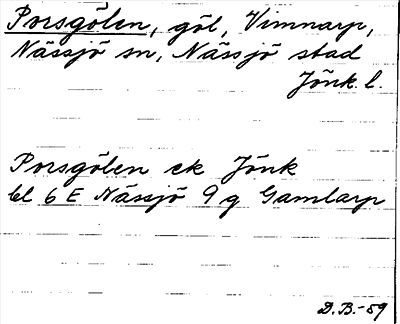 Porsgölen, göl, Vimnarp,
Nässjö sn, Nässjö stad
Jönk. l.
Porsgölen ek Jönk
bl 6 E Nässjö 9 g Gamlarp
D.B.-59